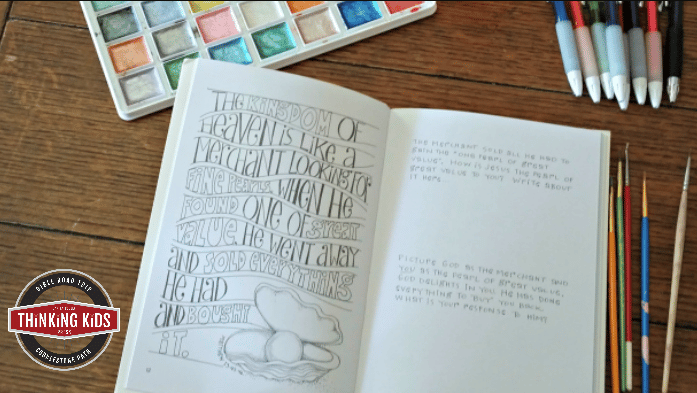 THE KINGDOM OF
HEAVEN IS LIKE A
MERCHANT LOOKING FOR
FINE PEARLS. WHEN HE
FOUND ONE OF GREAT
VALUE, HE WENT AWAY
AND SOLD EVERYTHING
HE HAD
AND BOUGHT
IT.
THE MERCHANT SOLD ALL HE HAD TO
GAIN THE "ONE PEARL OF GREAT
VALUE". HOW IS JESUS THE PEARL OF
GREAT VALUE TO YOU? WRITE ABOUT
IT HERE.
PICTURE GOD AS THE MERCHANT AND
YOU AS THE PEARL OF GREAT VALUE.
GOD DELIGHTS IN YOU. HE HAS DONE
EVERYTHING TO "BUY" YOU BACK.
WHAT IS YOUR RESPONSE TO HIM?
BIBLE ROAD TRIP
THINKING KIDS
PRESS
COBBLESTONE PATH